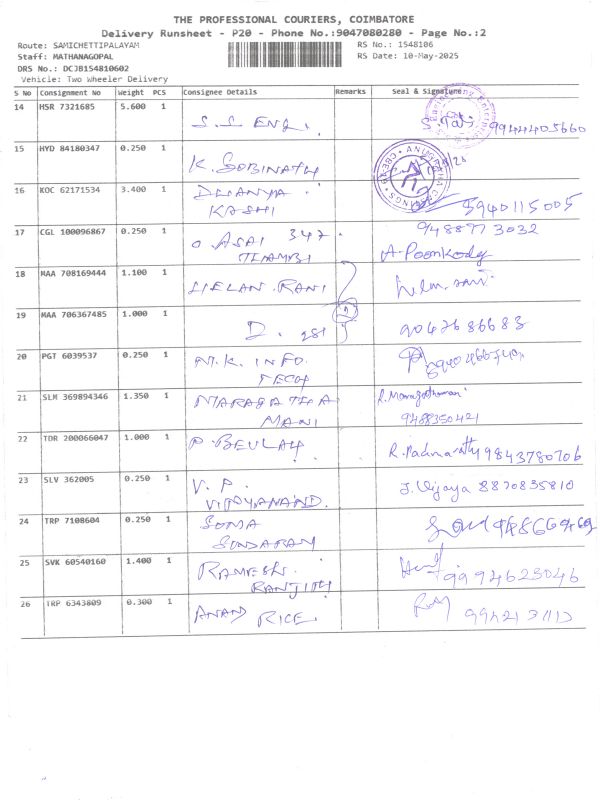 THE PROFESSIONAL COURIERS, COIMBATORE
Delivery Runsheet - P20 - Phone No.:9047080280 - Page No.:2
Route: SAMICHETTIPALAYAM
RS No.: 1548106
Staff: MATHANAGOPAL
RS Date: 10-May-2025
DRS No.: DCJB154810602
Vehicle: Two Wheeler Delivery
S No Consignment No Weight PCS Consignee Details Remarks Seal & Signature
14 HSR 7321685 5.600 1
S.S ENGI. 9944405660
15 HYD 84180347 0.250 1
K. GOBINATH
16 KOC 62171534 3.400 1 DHANYA
KASHI 5940115005
17 CGL 100096867 0.250 1 9488773032
O ASAI 347 THAMBI A. Poonkody
18 MAA 708169444 1.100 1
HELAN. RANI
19 MAA 706367485 1.000 1
D. 281 9047686683
20 PGT 6039537 0.250 1
M.K. INFO.
TECH
21 SLM 369894346 1.350 1
MARAGATHA
MANI 9488350421
22 TDR 200066047 1.000 1
P. BEULAH R. Padmavathy 9843780706
23 SLV 362005 0.250 1
V. P. J. Vijaya 8870835810
VIJAYANAND.
24 TRP 7108604 0.250 1
SOMA
SUNDARAM
25 SVK 60540160 1.400 1
RAMESH.
RANJITH 9994623046
26 TRP 6343809 0.300 1
ANAND RICE.